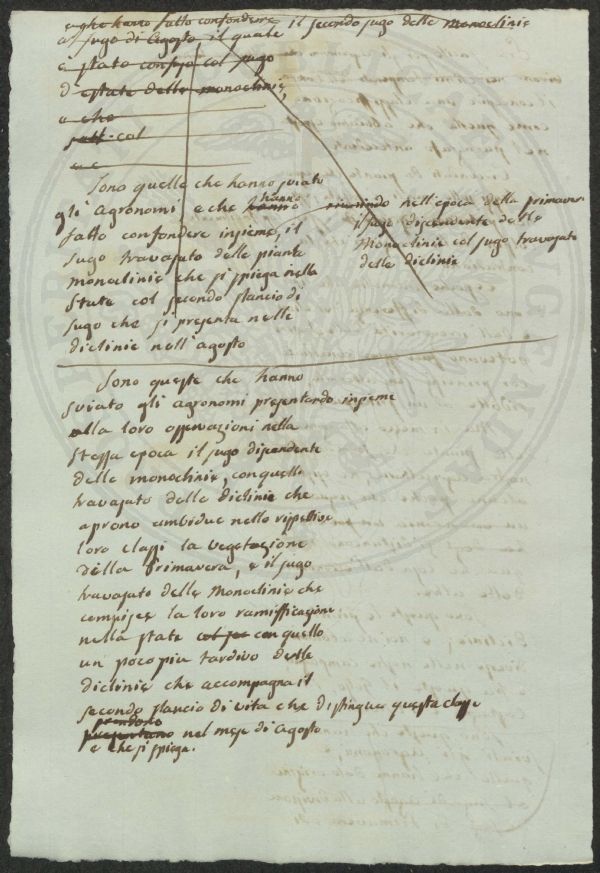 e che hanno fatto confondere il secondo sugo delle monoclinie
al sugo di Agosto il quale
e stato confuso col sugo
d'estate delle monoclinie,
e che
fatt. col
e c
Sono quelle che hanno sviato
gli Agronomi e che hanno hanno
fatto confondere insieme, il
sugo travasato delle piante
monoclinie che si spiega nella
state col secondo slancio di
sugo che si presenta nelle
diclinie nell'agosto
nell'epoca della primavera
il sugo discendente delle
Monoclinie col sugo travasato
delle diclinie
Sono queste che hanno
sviato gli agronomi presentando insieme
alla loro osservazioni nella
stessa epoca il sugo discendente
delle monoclinie, con quello
travasato delle diclinie che
aprono ambidue nelle rispettive
loro classi la vegetazione
della Primavera, e il sugo
travasato delle Monoclinie che
compisce la loro ramifficazione
nella state col su con quello
un poco piu tardivo delle
diclinie che accompagna il
secondo slancio di vita che distingue questa classe
prendono
presentano nel mese di Agosto
e che si spiega.